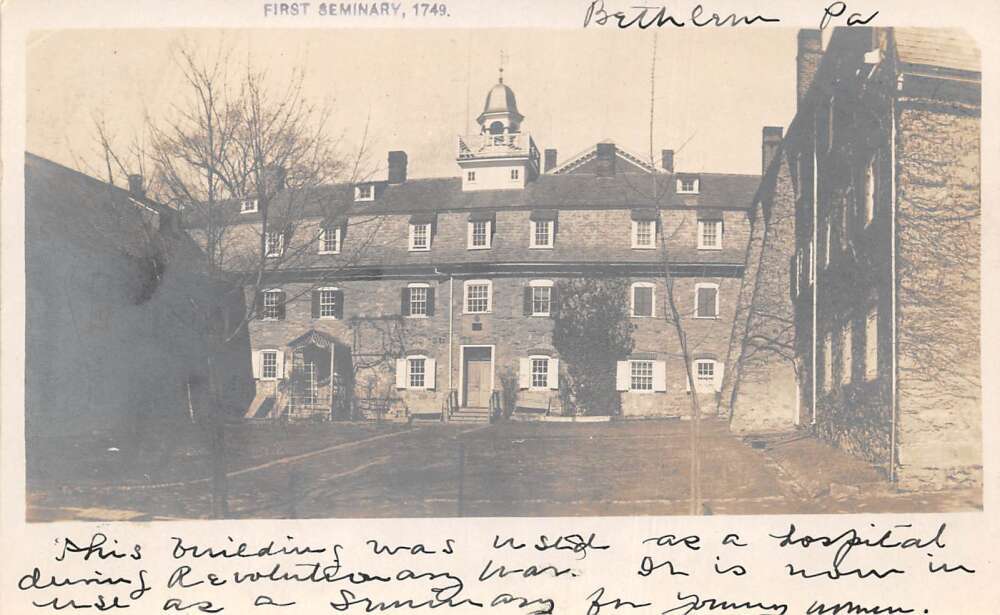 FIRST SEMINARY, 1749.
Bethlem Pa
This building was used as a hospital
during Revolutionary War. It is now in
use as a Seminary for young women.